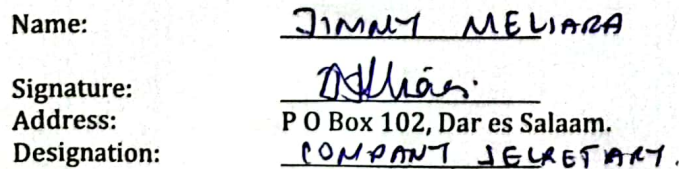 Name: JIMMY MELIARA
Signature:
Address: P O Box 102, Dar es Salaam.
Designation: COMPANY SECRETARY.